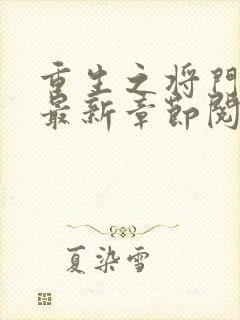 重生之将门
最新章节阅
夏染雪